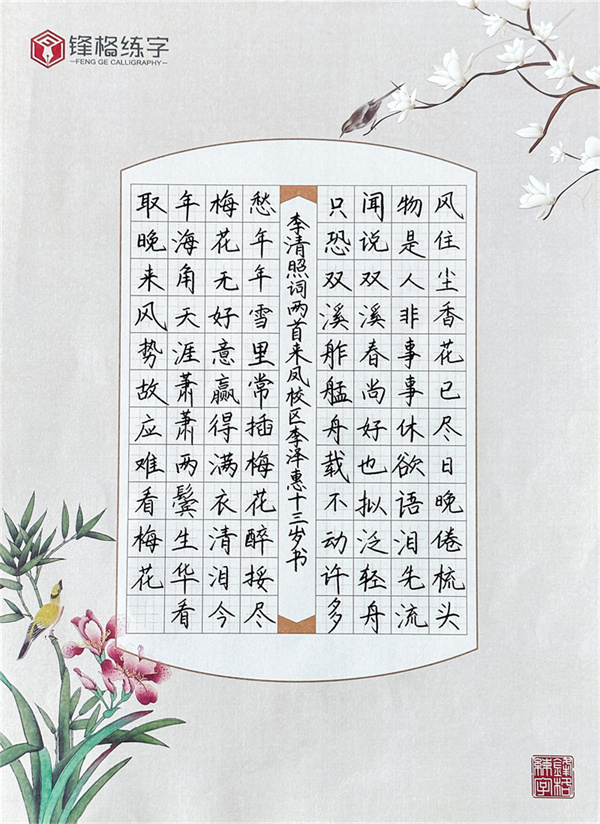 锋格练字
—FENG GE CALLIGRAPHY—
风住尘香花已尽日晚倦梳头
物是人非事事休欲语泪先流
闻说双溪春尚好也拟泛轻舟
只恐双溪舴艋舟载不动许多
李清照词两首来凤校区李泽惠十三岁书
愁年年雪里常插梅花醉挼尽
梅花无好意赢得满衣清泪今
年海角天涯萧萧两鬓生华看
取晚来风势故应难看梅花
鋒格
練字